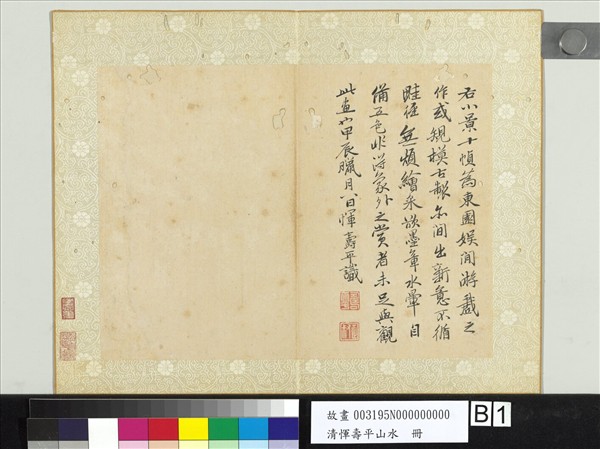 右小景十幀為東園娛閒游戲之
作或規模古製亦間出新意不循
畦徑無煩繪采故墨華水暈目
備五色非得象外之賞者未足與觀
此畫也甲辰臘月八日惲壽平識
故畫 003195N000000000
清惲壽平山水 冊
B 1